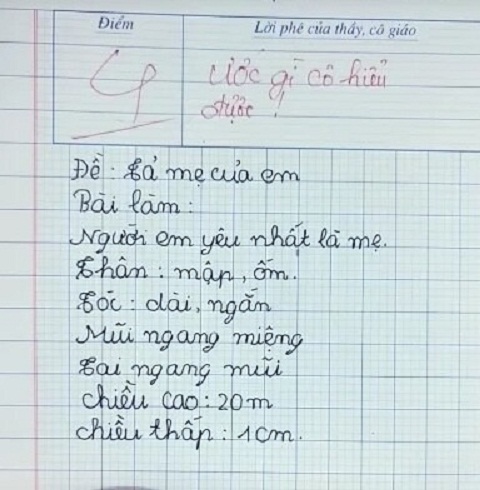 Điểm
Lời phê của thầy, cô giáo
4
Ước gì cô hiểu
được !
Đề : Tả mẹ của em
Bài làm :
Người em yêu nhất là mẹ.
Thân : mập, ốm.
Tóc : dài, ngắn
Mũi ngang miệng
Tai ngang mũi
chiều cao : 20 m
chiều thấp : 1 cm.